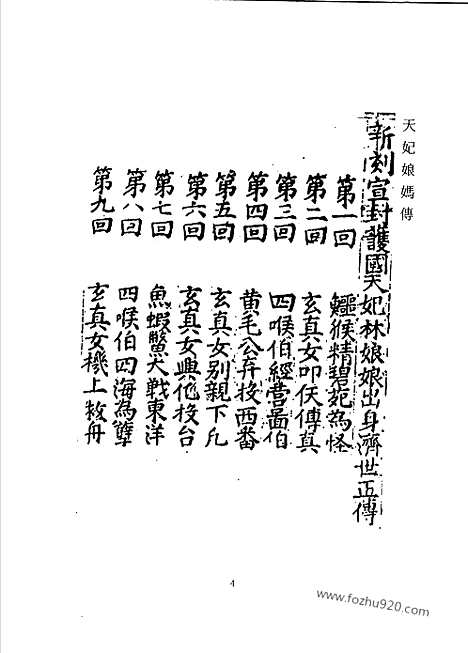 天妃娘媽傳
新刻宣封護國天妃林娘娘出身濟世正傳
第一回 鱷猴精碧妃為怪
第二回 玄真女叩佚傳真
第三回 四喉伯經營啚伯
第四回 黄毛公弃投西番
第五回 玄真女别親下凢
第六回 玄真女興化投台
第七回 魚蝦鱉大戦東洋
第八回 四喉伯四海為孽
第九回 玄真女機上救舟
4
www.fozhu920.com